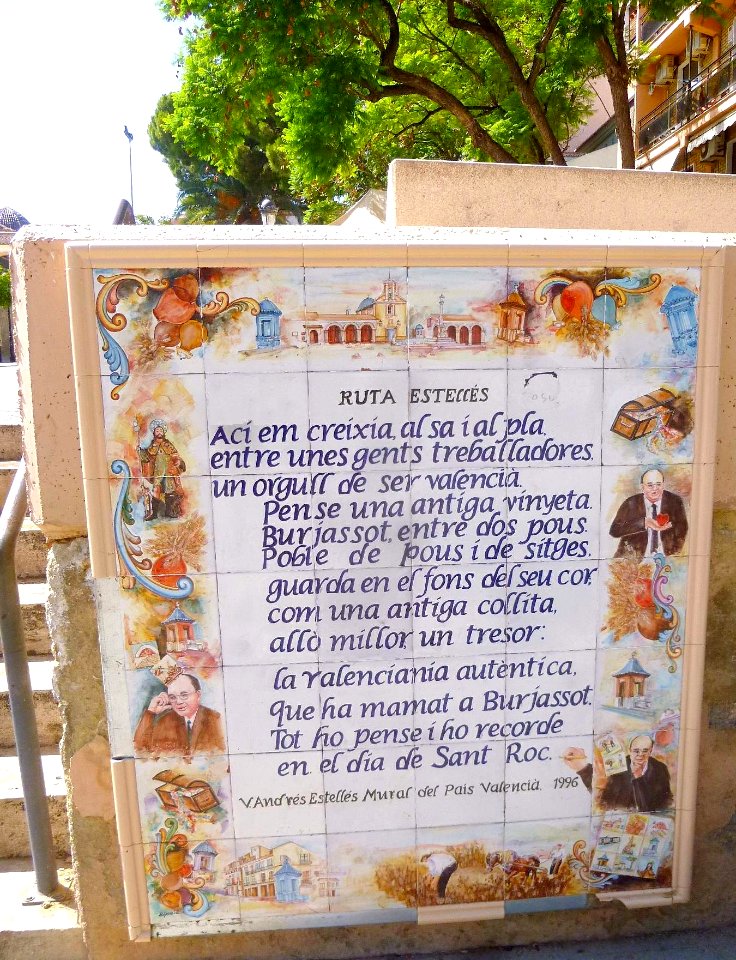 RUTA ESTELLÉS
Ací em creixia, al sa i al pla,
entre unes gents treballadores.
un orgull de ser valencià.
Pense una antiga vinyeta.
Burjassot, entre dos pous.
Poble de pous i de sitges,
guarda en el fons del seu cor,
com una antiga collita,
allò millor, un tresor:
la valenciania autèntica,
que ha mamat a Burjassot.
Tot ho pense i ho recorde
en el dia de Sant Roc.
V. Andrés Estellés Mural del País Valencià. 1996